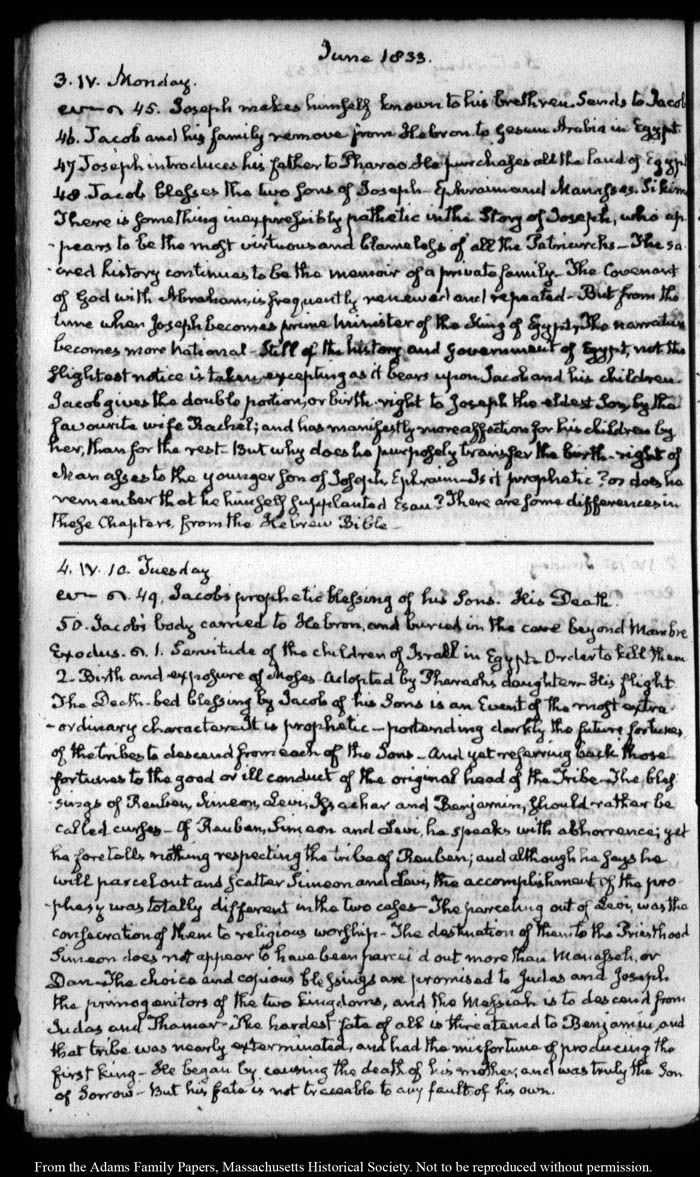 June 1833.
3. IV. Monday.
45. Joseph makes himself known to his brethren. Sends to Jacob
46. Jacob and his family remove from Hebron to Gesem Arabia in Egypt.
47 Joseph introduces his father to Pharao. He purchases all the land of Egyp
48. Jacob blesses the two Sons of Joseph - Ephraim and Manasses. Sikim
There is something inexpressibly pathetic in the Story of Joseph, who ap
-pears to be the most virtuous and blameless of all the Patriarchs - The sa
-cred history continues to be the memoir of a private family. The Covenant
of God with Abraham, is frequently renewed and repeated - But from the
time when Joseph becomes prime minister of the King of Egypt, The narrative
becomes more national - Still of the history and government of Egypt, not the
slightest notice is taken, excepting as it bears upon Jacob and his children.
Jacob gives the double portion, or birth-right to Joseph the eldest Son, by the
favourite wife Rachel; and has manifestly more affection for his children by
her, than for the rest - But why does he purposely transfer the birth-right of
Manasses to the younger Son of Joseph Ephraim - Is it prophetic? or does he
remember that he himself supplanted Esau? There are some differences in
these Chapters, from the Hebrew Bible -
4. IV. 10. Tuesday
49. Jacob's prophetic blessing of his Sons. His Death.
50. Jacob's body carried to Hebron, and buried in the cave beyond Mambre
Exodus. 1. Servitude of the children of Israel in Egypt - Order to kill them
2. Birth and exposure of Moses - Adopted by Pharaohs daughter - His flight
The Death-bed blessing by Jacob of his Sons is an Event of the most extra
-ordinary character - It is prophetic - portending darkly the future fortunes
of the tribes to descend from each of the Sons - And yet referring back those
fortunes to the good or ill conduct of the original head of the Tribe - The bles
-sings of Reuben, Simeon, Levi, Issachar and Benjamin, should rather be
called curses - Of Reuben, Simeon and Levi, he speaks with abhorrence; yet
he foretells nothing respecting the tribe of Reuben; and although he says he
will parcel out and scatter Simeon and Levi, the accomplishment of the pro-
-phesy was totally different in the two cases - The parceling out of Levi, was the
consecration of them to religious worship - The destination of them to the Priesthood
Simeon does not appear to have been parcel'd out more than Manasseh, or
Dan - The choice and copious blessings are promised to Judas and Joseph
the primogenitors of the two kingdoms, and the Messiah is to descend from
Judas and Thamar - The hardest fate of all is threatened to Benjamin, and
that tribe was nearly exterminated, and had the misfortune of producing the
first king - He began by causing the death of his mother, and was truly the Son
of Sorrow - But his fate is not traceable to any fault of his own.
From the Adams Family Papers, Massachusetts Historical Society. Not to be reproduced without permission.